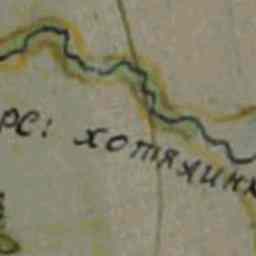 рс: хотялинк